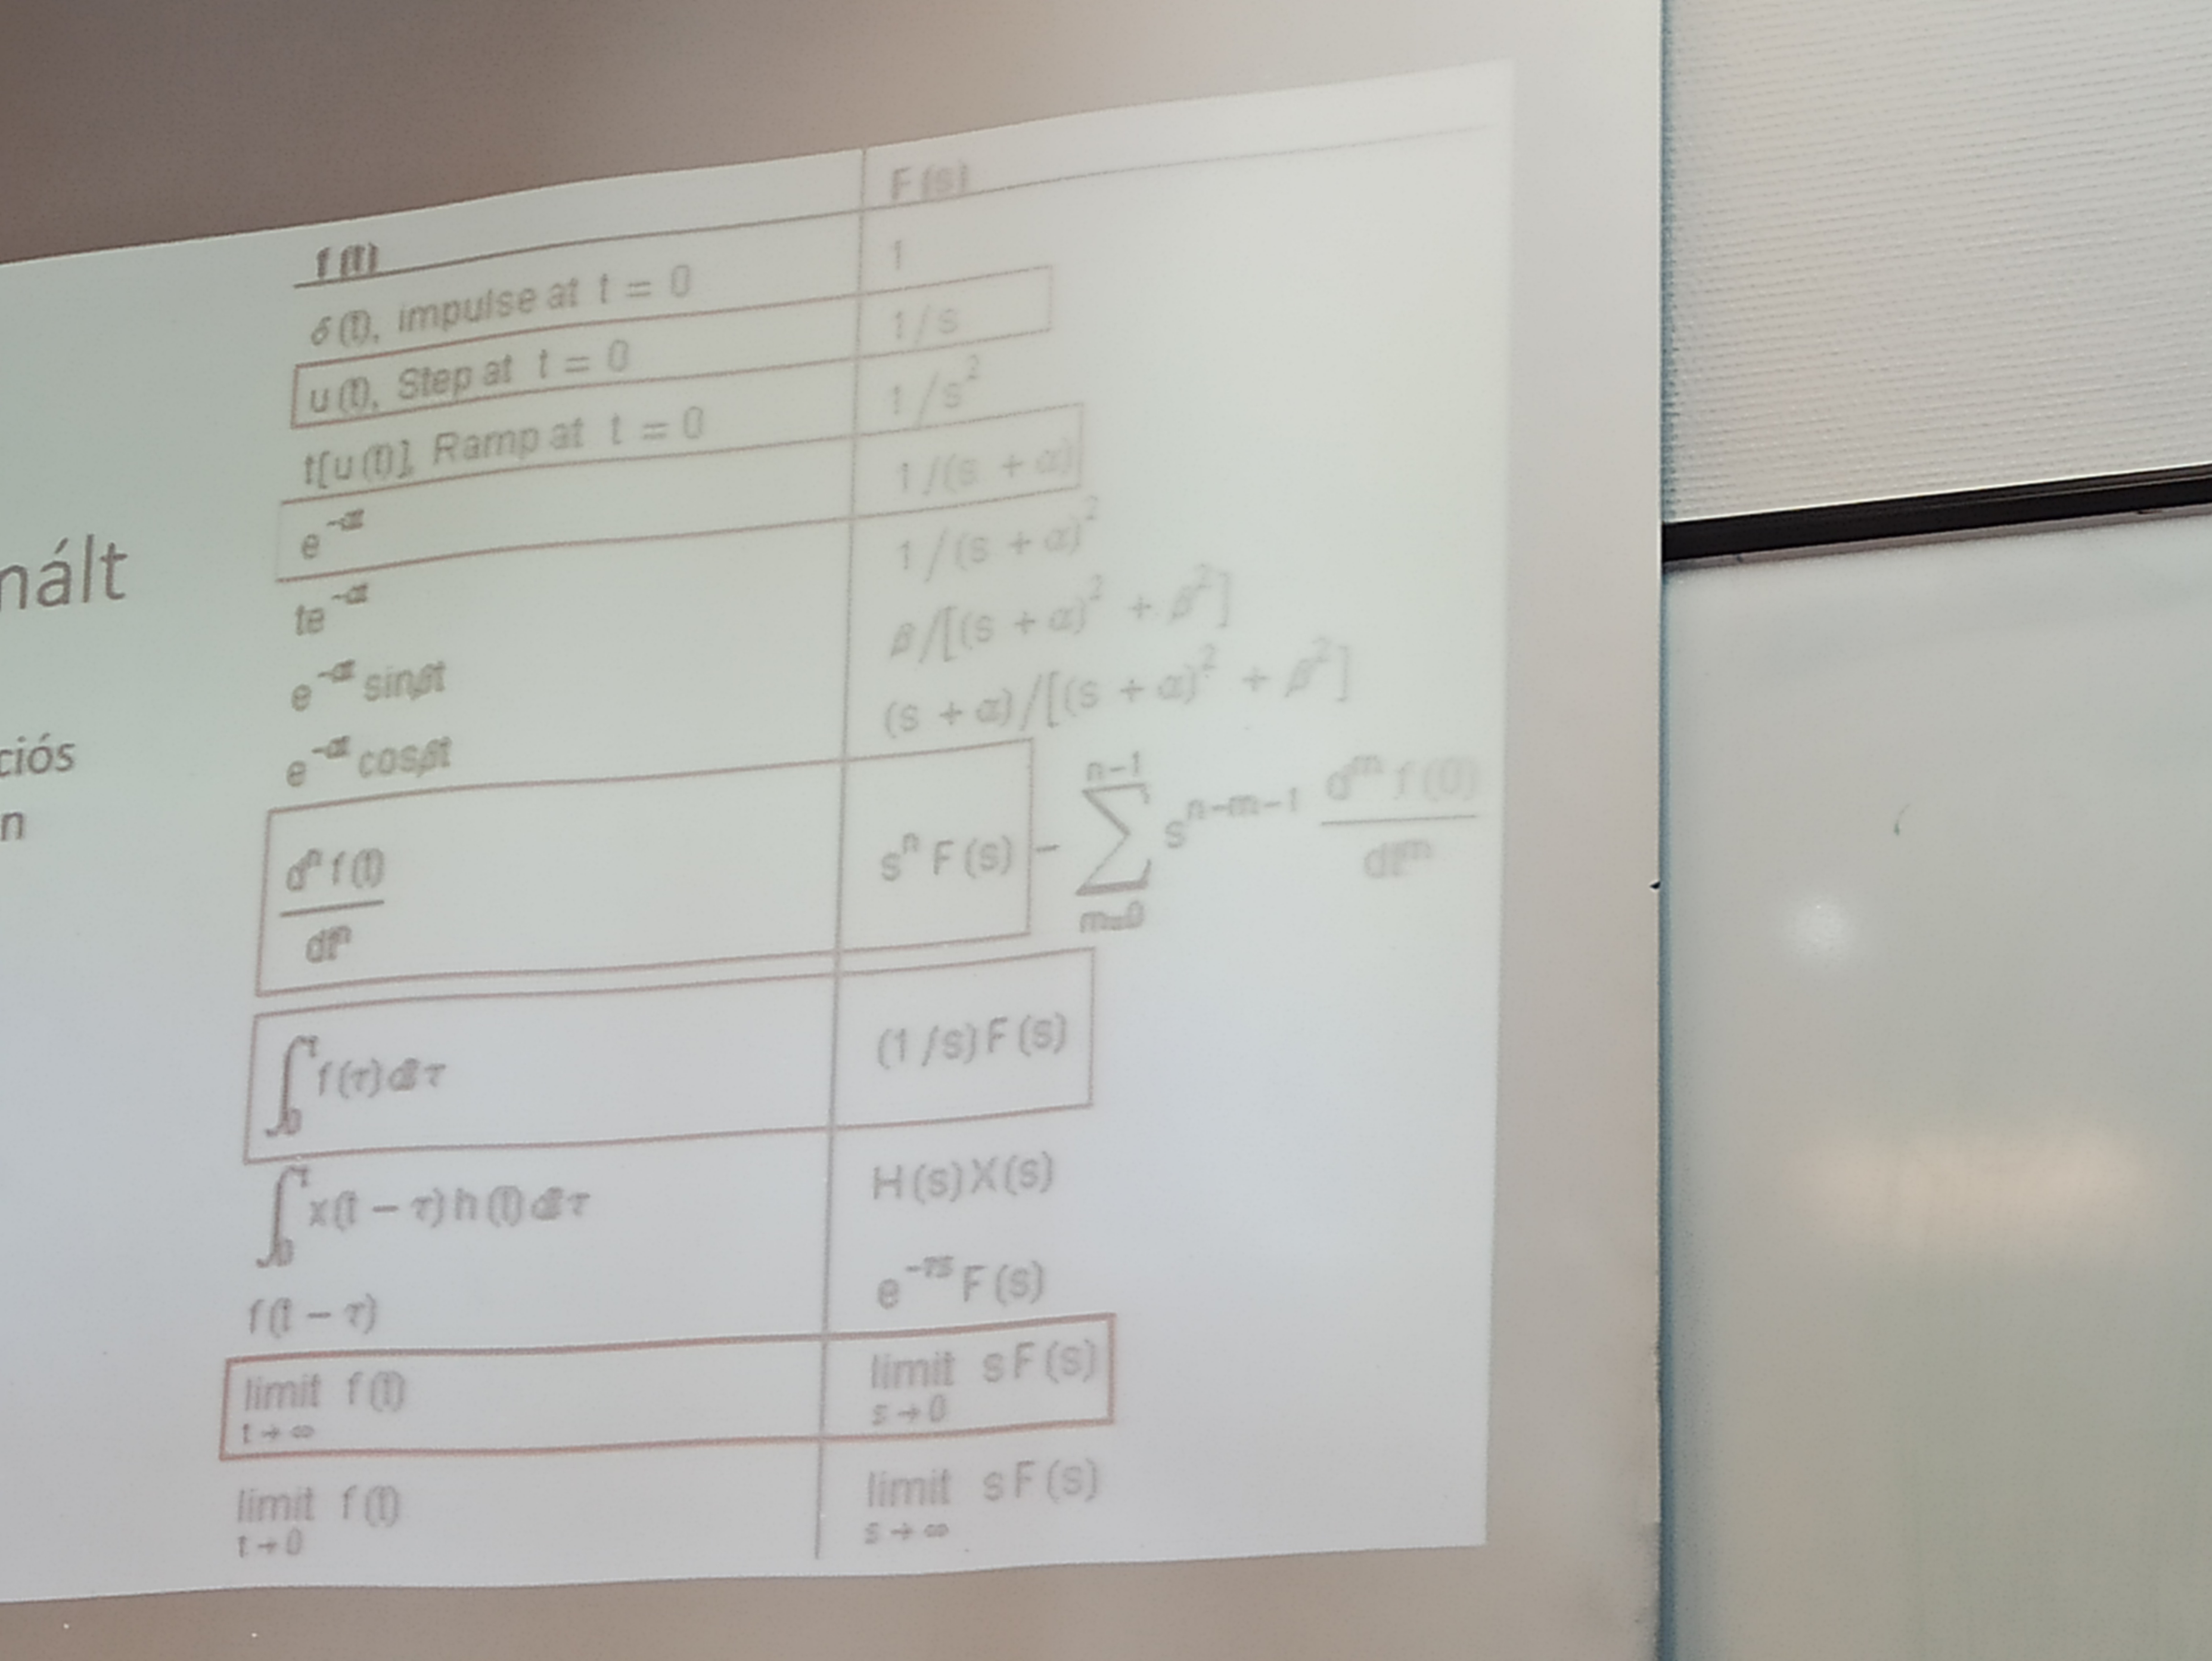 nált
ciós
n
f(t) F(s)
δ(t), impulse at t = 0 1
u(t), Step at t = 0 1/s
t[u(t)], Ramp at t = 0 1/s²
e^{-αt} 1/(s + α)
te^{-αt} 1/(s + α)²
e^{-αt} sinβt β/[(s + α)² + β²]
e^{-αt} cosβt (s + α)/[(s + α)² + β²]
dⁿf(t)/dtⁿ sⁿF(s) − ∑_{m=0}^{n−1} s^{n−m−1} d^m f(0)/dt^m
∫₀ᵗ f(τ)dτ (1/s)F(s)
∫₀ᵗ x(t − τ)h(t)dτ H(s)X(s)
f(t − τ) e^{−τs}F(s)
limit f(t) limit sF(s)
t→∞ s→0
limit f(t) limit sF(s)
t→0 s→∞